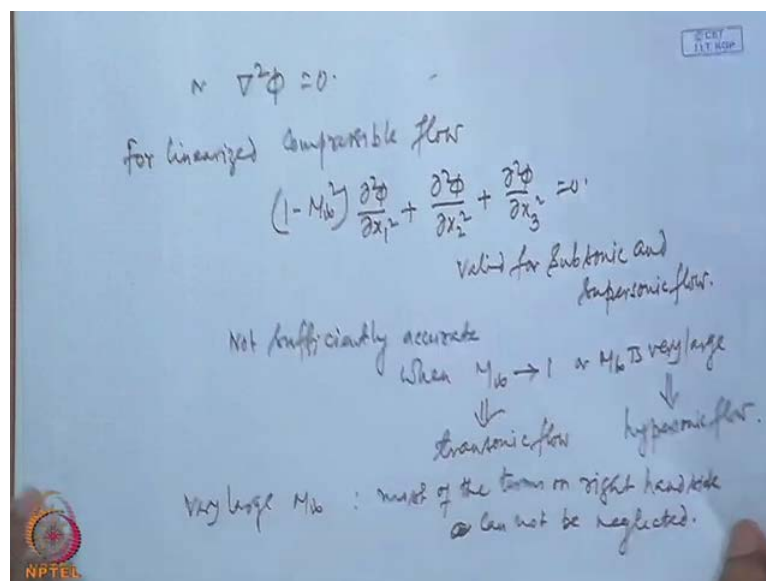 © CET
I.I.T. KGP
∇²φ = 0.
for linearized compressible flow
(1 - M∞²) ∂²φ/∂x₁² + ∂²φ/∂x₂² + ∂²φ/∂x₃² = 0.
Valid for Subsonic and
Supersonic flow.
Not Sufficiently accurate
When M∞ → 1 or M∞ is very large
⇓ ⇓
transonic flow hypersonic flow.
Very large M∞ : most of the terms on right hand side
can not be neglected.
NPTEL